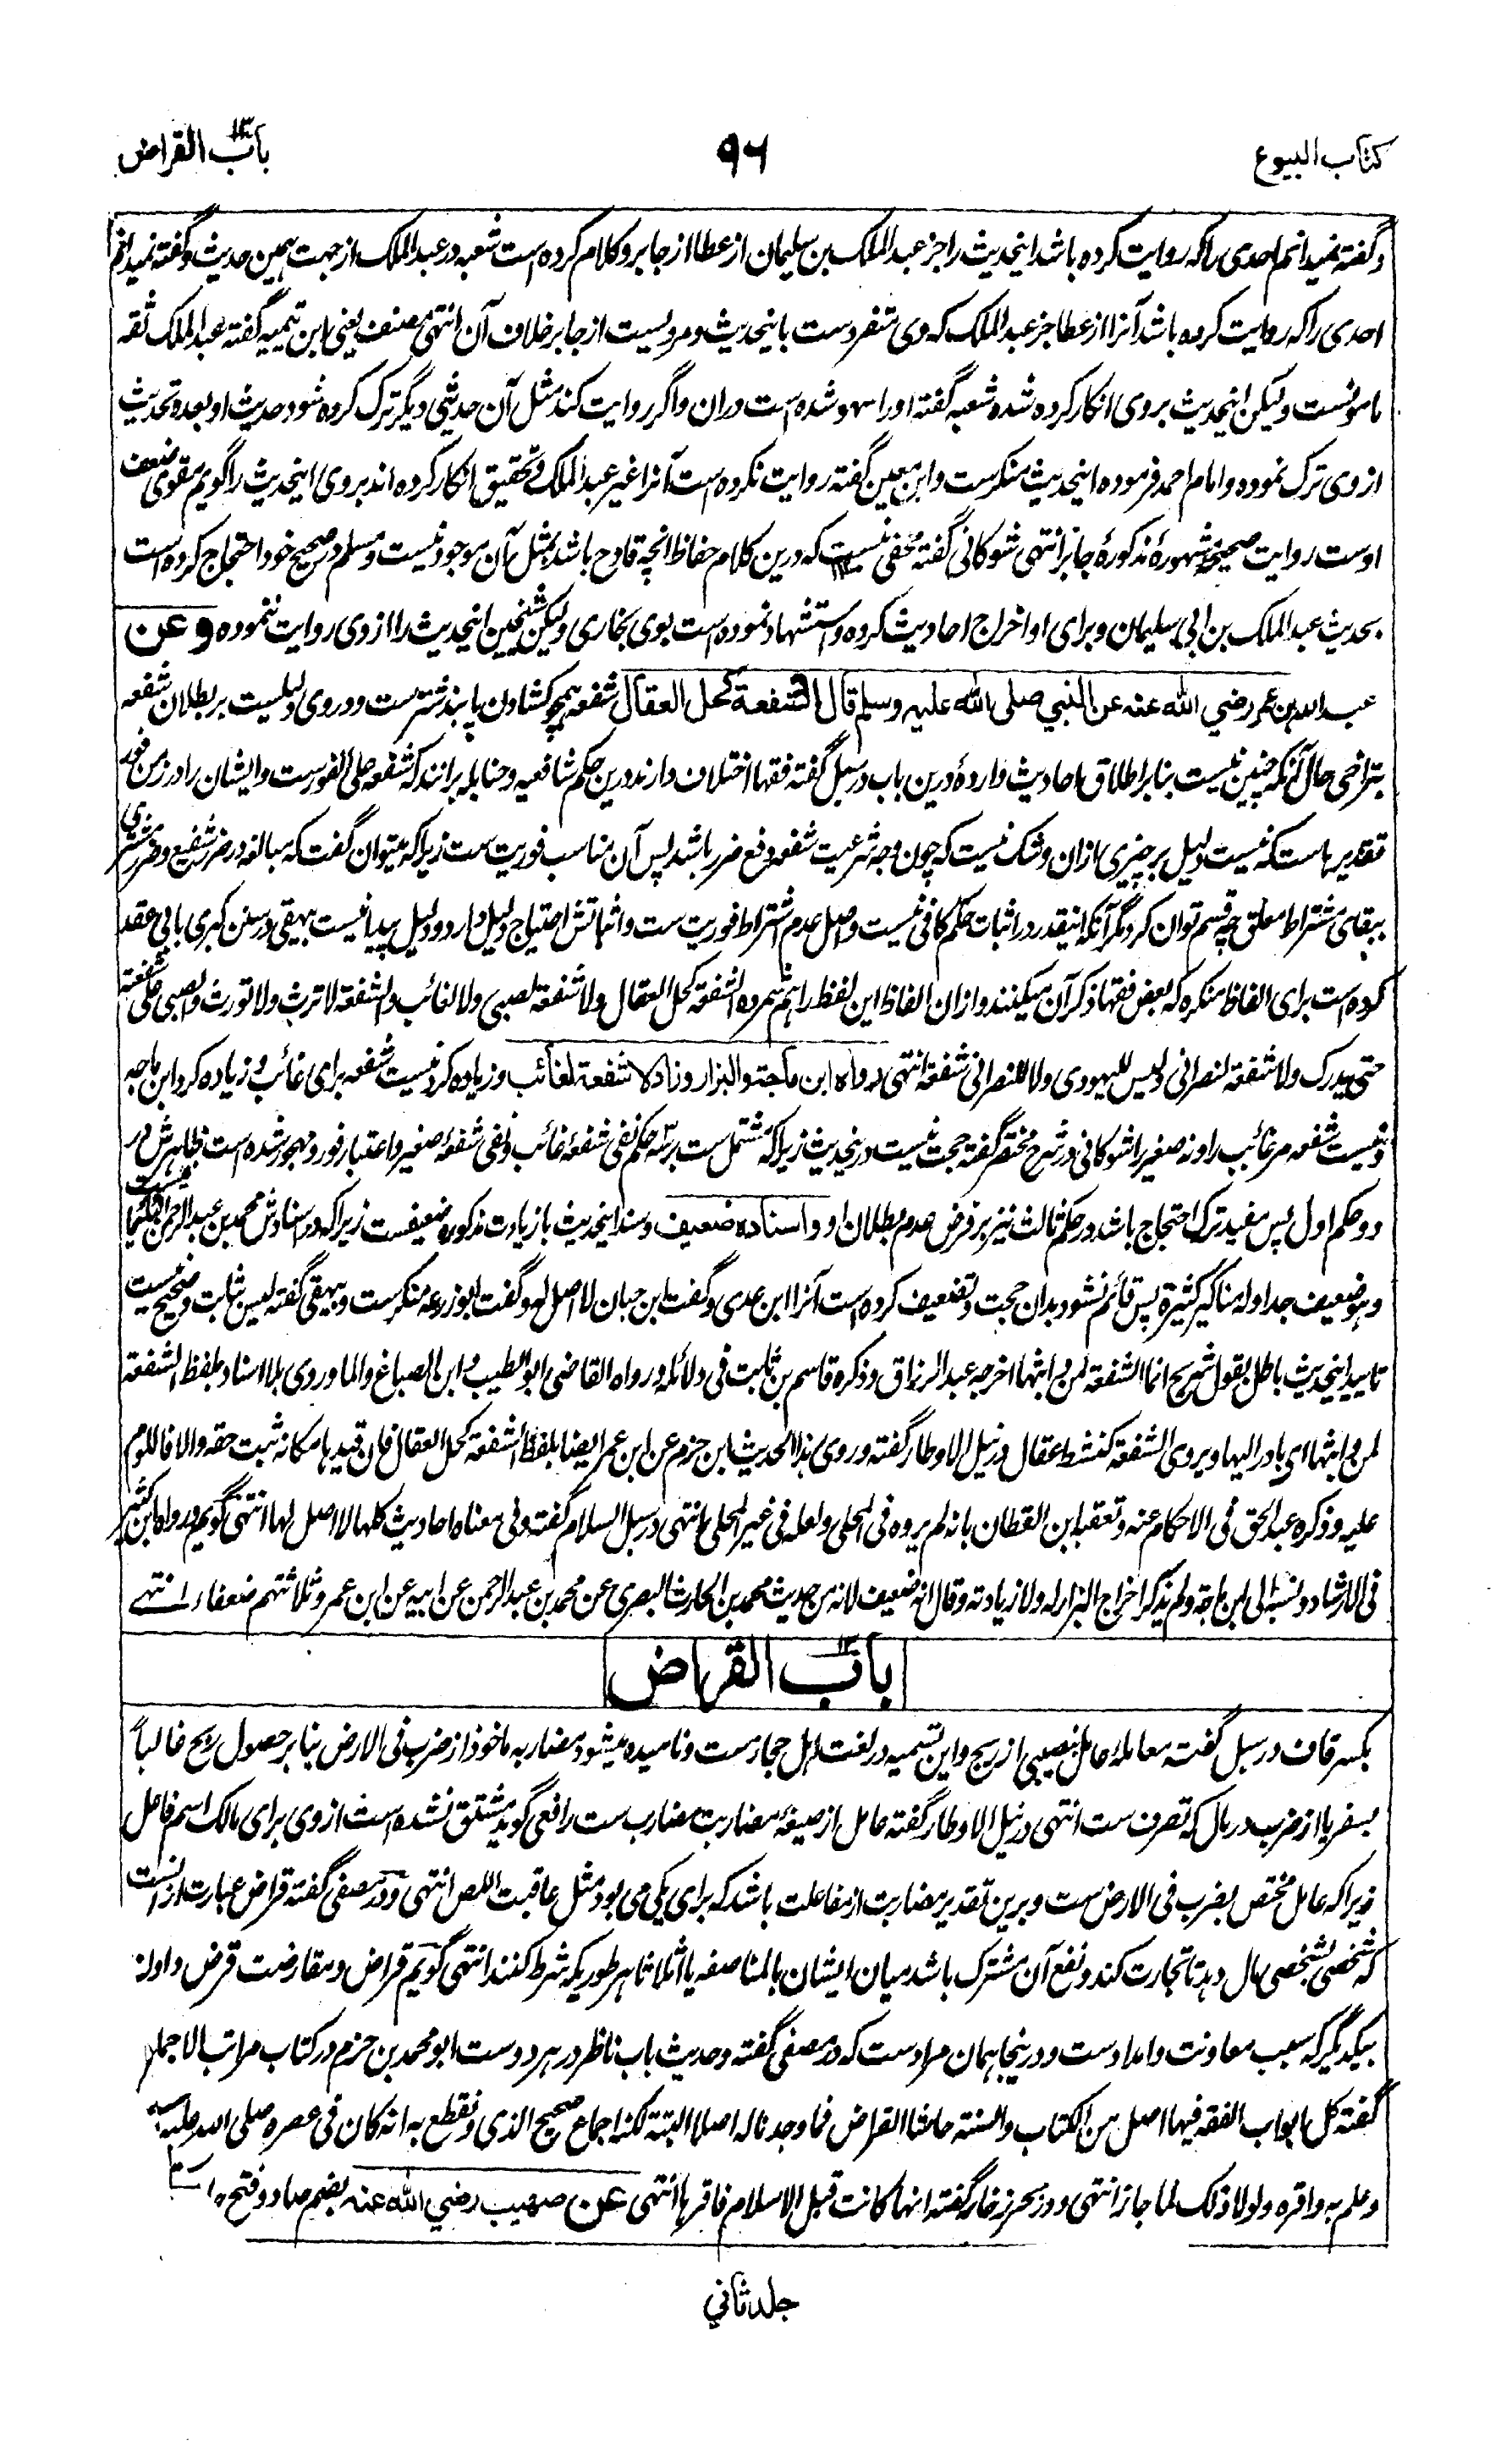 کتاب البیوع
۹۶
باب القراض
و گفته نمیدانم احدی را که روایت کرده باشد اینحدیث را جز عبدالملک بن سلیمان از عطا از جابر و کلام کرده است شعبه در عبدالملک از جهت همین حدیث و گفته نمیدانم
احدی را که روایت کرده باشد آنرا از عطا جز عبدالملک که وی متفردست باینحدیث و مرویست از جابر خلاف آن انتهی مصنف یعنی ابن تیمیه گفته عبدالملک ثقه
مامونست ولیکن اینحدیث بروی انکار کرده شده شعبه گفته او را سهو شده است دران و اگر روایت کند مثل آن حدیثی دیگر ترک کرده شود حدیث او بعده تحدیث
از وی ترک نموده و امام احمد فرموده اینحدیث منکرست و ابن معین گفته روایت نکرده است آنرا غیر عبدالملک و تحقیق انکار کرده اند بروی اینحدیث را گویم مقوی ضعف
اوست روایت صحیحه مشهورهٔ مذکورهٔ جابر انتهی شوکانی گفته مخفی نیست که درین کلام حفاظ انچه قادح باشد بمثل آن موجود نیست و مسلم در صحیح خود احتجاج کرده است
بحدیث عبدالملک بن ابی سلیمان و برای او اخراج احادیث کرده و استشهاد نموده است بوی بخاری ولیکن شیخین اینحدیث را از وی روایت ننموده و عن
عبد الله بن عمر رضي الله عنه عن النبي صلى الله عليه وسلم قال الشفعة كحل العقال شفعه همچو کشادن پابند شترست و دروی دلیلست بر بطلان شفعه
بتراخی حال آنکه چنین نیست بنا بر اطلاق احادیث واردهٔ درین باب در سبل گفته فقها اختلاف دارند درین حکم شافعیه و حنابله برانند که شفعه علی الفورست و ایشان را در زمن فور
تقدیرهاست که نیست دلیل بر چیزی ازان و شک نیست که چون وجه شرعیت شفعه دفع ضرر باشد پس آن مناسب فوریت ست زیرا که میتوان گفت که مبالغه در ضرر شفیع و ضرر مشتری
ببقای اشتراط معلق چه قسم توان کرد مگر آنکه اینقدر در اثبات حکم کافی نیست و اصل عدم اشتراط فوریت ست و اثباتش احتیاج دلیل دارد و دلیل پیدا نیست بیهقی در سنن کبری بابی عقد
کرده است برای الفاظ منکره که بعض فقها ذکر آن میکنند و ازان الفاظ این لفظ را هم شمرده الشفعة کحل العقال ولا شفعة لصبی ولا لغائب و الشفعة لا ترث ولا تورث و الصبی علی شفعته
حتی یدرک ولا شفعة لنصرانی و لیس للیهودی ولا للنصرانی شفعة انتهی رواه ابن ماجة والبزار وزاد لا شفعة لغائب و زیاده کرد نیست شفعه برای غائب و زیاده کرد ابن ماجه
و نیست شفعه مر غائب را و نه صغیر را شوکانی در شرح مختصر گفته حجت نیست درینحدیث زیرا که مشتمل ست بر سه حکم نفی شفعهٔ غائب و نفی شفعهٔ صغیر و اعتبار فور و مهجور شده است ظاهرش در
دو حکم اول پس مفید ترک احتجاج باشد در حکم ثالث نیز بر فرض عدم بطلان او و اسناده ضعیف و سند اینحدیث با زیادت مذکوره ضعیفست زیرا که در اسنادش محمد بن عبدالرحمن البیلمانیست
و هو ضعیف جدا و له مناکیر کثیرة پس قائم نشود بدان حجت و تضعیف کرده است آنرا ابن عدی و گفت ابن حبان لا اصل له و گفت ابوزرعه منکرست و بیهقی گفته لیس بثابت و صحیح نیست
تایید اینحدیث باطل بقول شریح انما الشفعة لمن واثبها اخرجه عبدالرزاق و ذکره قاسم بن ثابت فی دلائله و رواه القاضی ابوالطیب و ابن الصباغ والماوردی بلا اسناد بلفظ الشفعة
لمن واثبها ای بادر الیها و یروی الشفعة کنشط عقال در نیل الاوطار گفته و روی هذا الحدیث ابن حزم عن ابن عمر ایضا بلفظ الشفعة کحل العقال فان قیدها مکانه ثبت حقه والا فاللوم
علیه و ذکره عبدالحق فی الاحکام عنه و تعقبه ابن القطان بانه لم یروه فی المحلی و لعله فی غیر المحلی انتهی در سبل السلام گفته و فی معناه احادیث کلها لا اصل لها انتهی گویم و رواه ابن کثیر
فی الارشاد و نسبه الی ابن ماجة و لم یذکر اخراج البزار له ولا زیادته و قال انه ضعیف لانه من حدیث محمد بن الحارث البصری عن محمد بن عبدالرحمن عن ابیه عن ابن عمر و ثلاثتهم ضعفاء انتهی
باب القراض
بکسر قاف در سبل گفته معاملهٔ عامل بنصیبی از ربح و این تسمیه در لغت اهل حجازست و نامیده میشود مضاربه ماخوذ از ضرب فی الارض بنا بر حصول ربح غالباً
بسفر یا از ضرب در مال که تصرف ست انتهی در نیل الاوطار گفته عامل از صیغهٔ مضاربت مضارب ست رافعی گوید مشتق نشده است از وی برای مالک اسم فاعل
زیرا که عامل مختص بضرب فی الارض ست و برین تقدیر مضاربت از مفاعلت باشد که برای یکی می بود مثل عاقبت اللص انتهی و در مصفی گفته قراض عبارت ازانست
که شخصی بشخصی مال دهد تا تجارت کند و نفع آن مشترک باشد میان ایشان بالمناصفه یا اثلاثا هر طوریکه شرط کنند انتهی گویم قراض و مقارضت قرض دادن
بیکدیگر که سبب معاونت و امدادست و درینجا همان مرادست که در مصفی گفته و حدیث باب ناظر در هر دوست ابومحمد بن حزم در کتاب مراتب الاجماع
گفته کل ابواب الفقه فیها اصل من الکتاب والسنة حاشا القراض فما وجدنا له اصلا البتة لکنه اجماع صحیح الذی و نقطع به انه کان فی عصره صلی الله علیه
و علم به و اقره و لولا ذلک لما جاز انتهی و در بحر زخار گفته انها کانت قبل الاسلام فاقرها انتهی عن صهیب رضي الله عنه بضم صاد و فتح ها
جلد ثاني